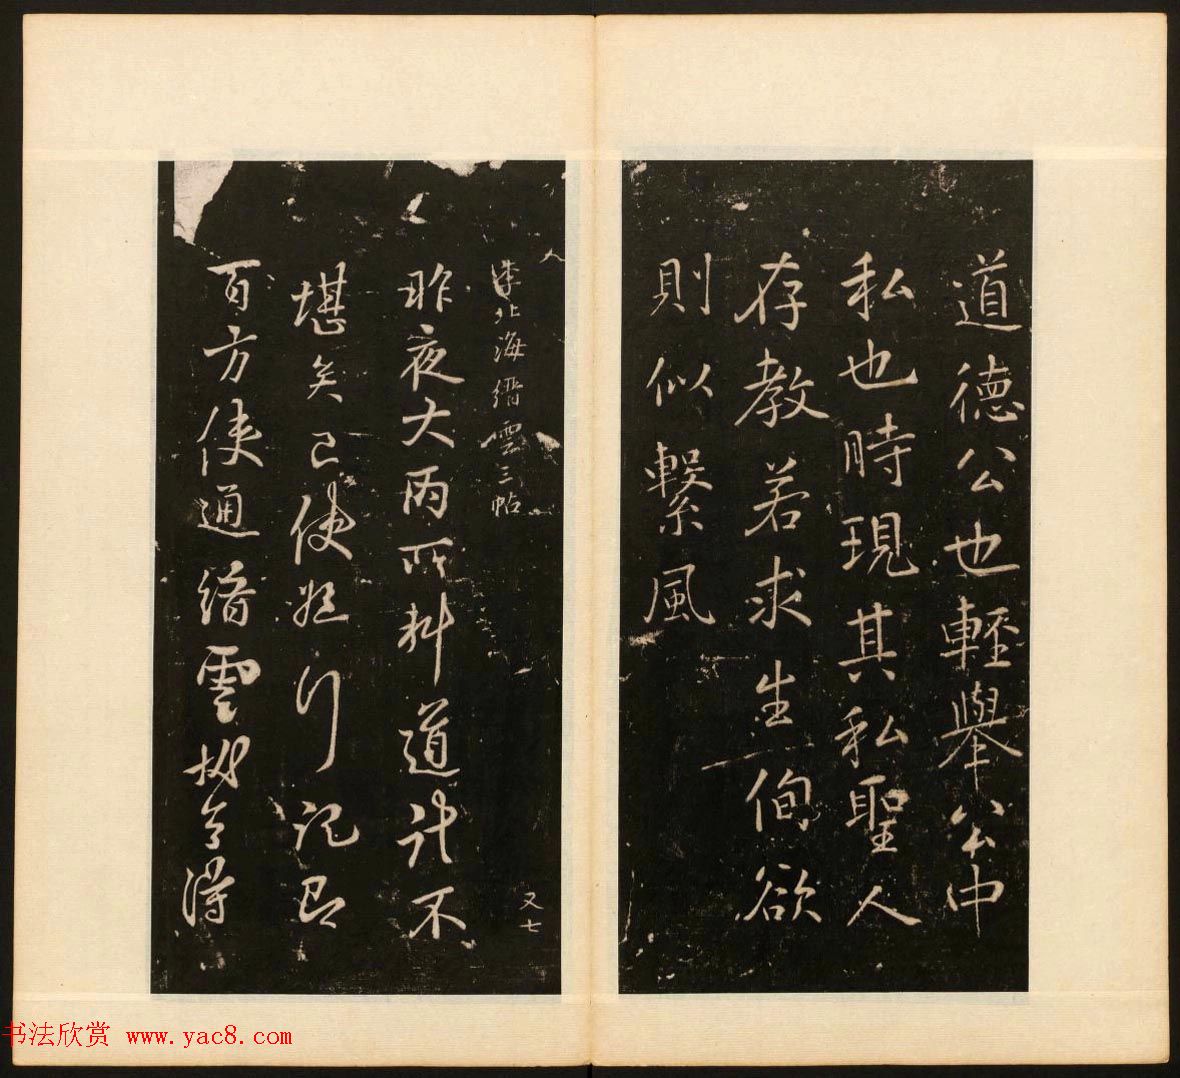 道德公也輕舉公中
私也時現其私聖人
存教若求生侚欲
則似繫風
李北海縉雲三帖
昨夜大雨所料道計不
堪矣已使行記即
百方使通縉雲得
又七
书法欣赏 www.yac8.com